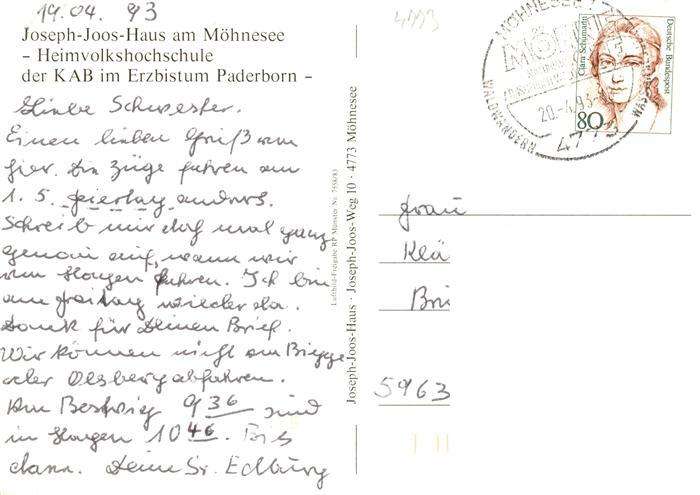 19.04. 93
Joseph-Joos-Haus am Möhnesee
– Heimvolkshochschule
der KAB im Erzbistum Paderborn –
Liebe Schwester.
Einen lieben Gruß von
hier. Die Züge fahren am
1. 5. Feiertag anders.
Schreib mir doch mal ganz
genau auf, wann wir
von Hagen fahren. Ich bin
am Freitag wieder da.
Dank für Deinen Brief.
Wir können nicht von Bigge
oder Olsberg abfahren.
Von Bestwig 9 36 sind
in Hagen 10 46. Bis
dann. Deine Sr. Edburg
Luftbild-Freigabe RP Münster Nr. 7598/83
Joseph-Joos-Haus · Joseph-Joos-Weg 10 · 4773 Möhnesee
MÖHNESEE 1
WALDWANDERN
20.-4.93
4773
Clara Schumann
Deutsche Bundespost
80
Frau
Klä
Bri
5963